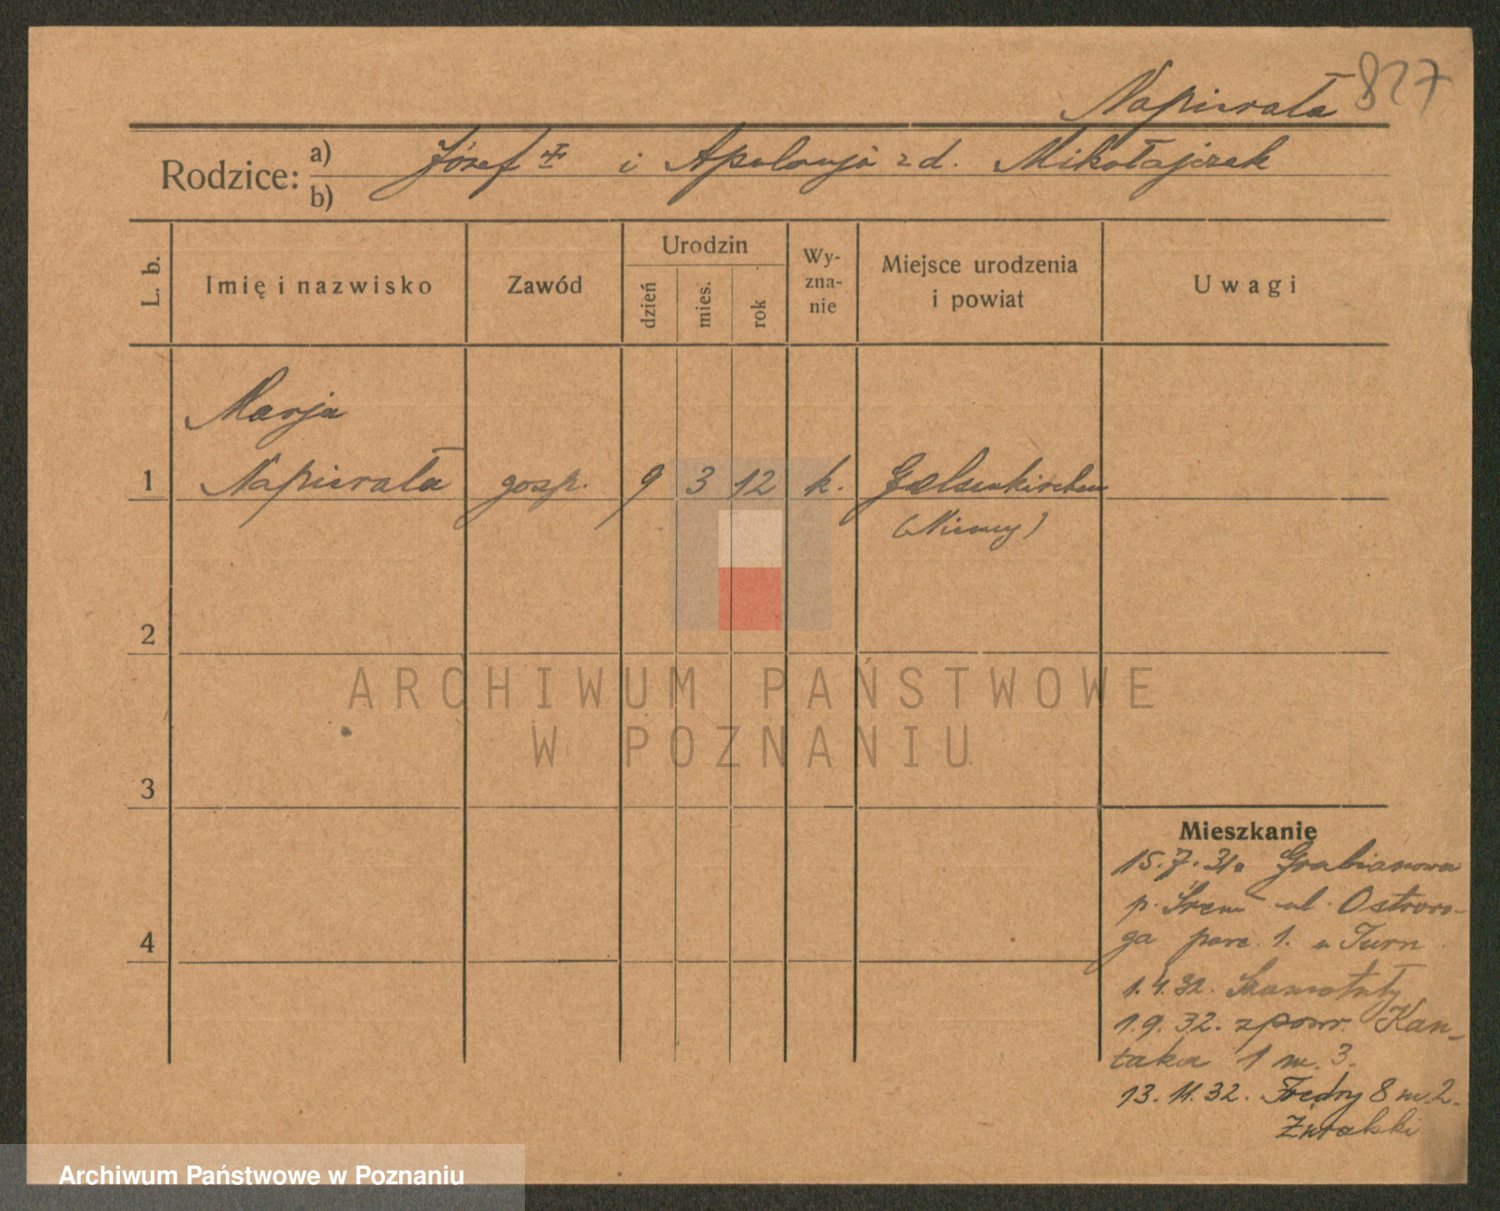 Napierała 827
Rodzice: a) Józef ✝ i Apolonja z d. Mikołajczak
b)
L. b. Imię i nazwisko Zawód Urodzin dzień mies. rok Wy-zna-nie Miejsce urodzenia i powiat Uwagi
Marja
1 Napierała gosp. 9 3 12 k. Gelsenkirchen
(Niemcy)
2
ARCHIWUM PAŃSTWOWE
W POZNANIU
3
Mieszkanie
15.7.31. Grabianowo
p. Śrem ul. Ostroro-
ga parc. 1. u Turn
4
1.4.32. Szamotuły
1.9.32. z pow. Kan-
taka 1 m. 3.
13.11.32. Fredry 8 m. 2.
Żuralski
Archiwum Państwowe w Poznaniu